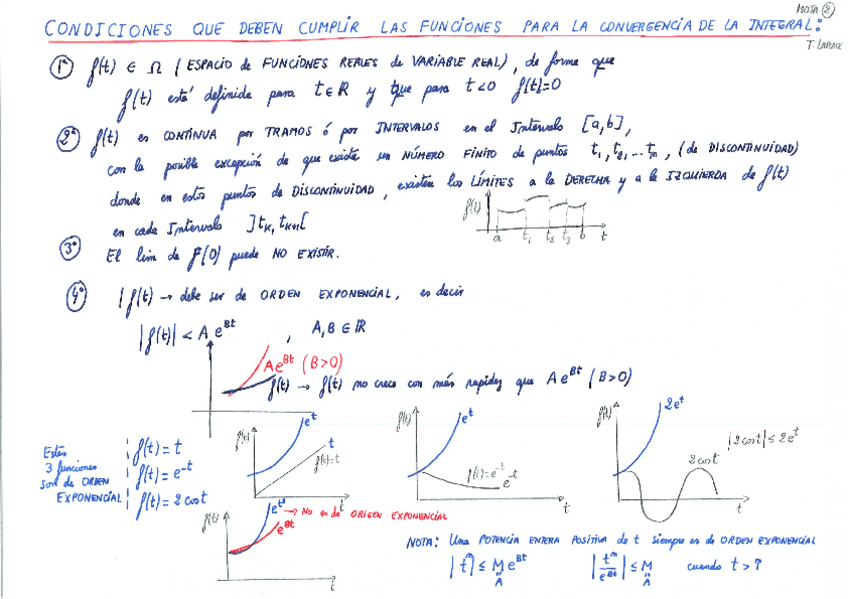 HOJA 2
CONDICIONES QUE DEBEN CUMPLIR LAS FUNCIONES PARA LA CONVERGENCIA DE LA INTEGRAL:
T. LAPLACE
1ª f(t) ∈ Ω (ESPACIO de FUNCIONES REALES de VARIABLE REAL), de forma que
f(t) esté definida para t ∈ ℝ y que para t<0 f(t)=0
2ª f(t) es CONTINUA por TRAMOS ó por INTERVALOS en el Intervalo [a,b],
con la posible excepción de que exista un NÚMERO FINITO de puntos t₁, t₂,... tₙ, (de DISCONTINUIDAD)
donde en estos puntos de DISCONTINUIDAD, existen los LÍMITES a la DERECHA y a la IZQUIERDA de f(t)
en cada Intervalo ]tₖ, tₖ₊₁[
f(t) a t₁ t₂ t₃ b t
3ª El lim de f(0) puede NO EXISTIR.
4ª |f(t) → debe ser de ORDEN EXPONENCIAL, es decir
|f(t)| < A e^Bt , A,B ∈ ℝ
A e^Bt (B>0)
f(t) → f(t) no crece con más rapidez que A e^Bt (B>0)
Estas
3 funciones
son de ORDEN
EXPONENCIAL
f(t) = t
f(t) = e^-t
f(t) = 2 cost
f(t) e^t t f(t)=t t
f(t) e^t f(t)=e^-t e^-t t
f(t) 2e^t |2cost| ≤ 2e^t 2cost t
f(t) e^t² → NO es de ORIGEN EXPONENCIAL
e^Bt
t
NOTA: Una POTENCIA ENTERA POSITIVA de t siempre es de ORDEN EXPONENCIAL
|tⁿ| ≤ M e^Bt |tⁿ/e^Bt| ≤ M cuando t > T
A A